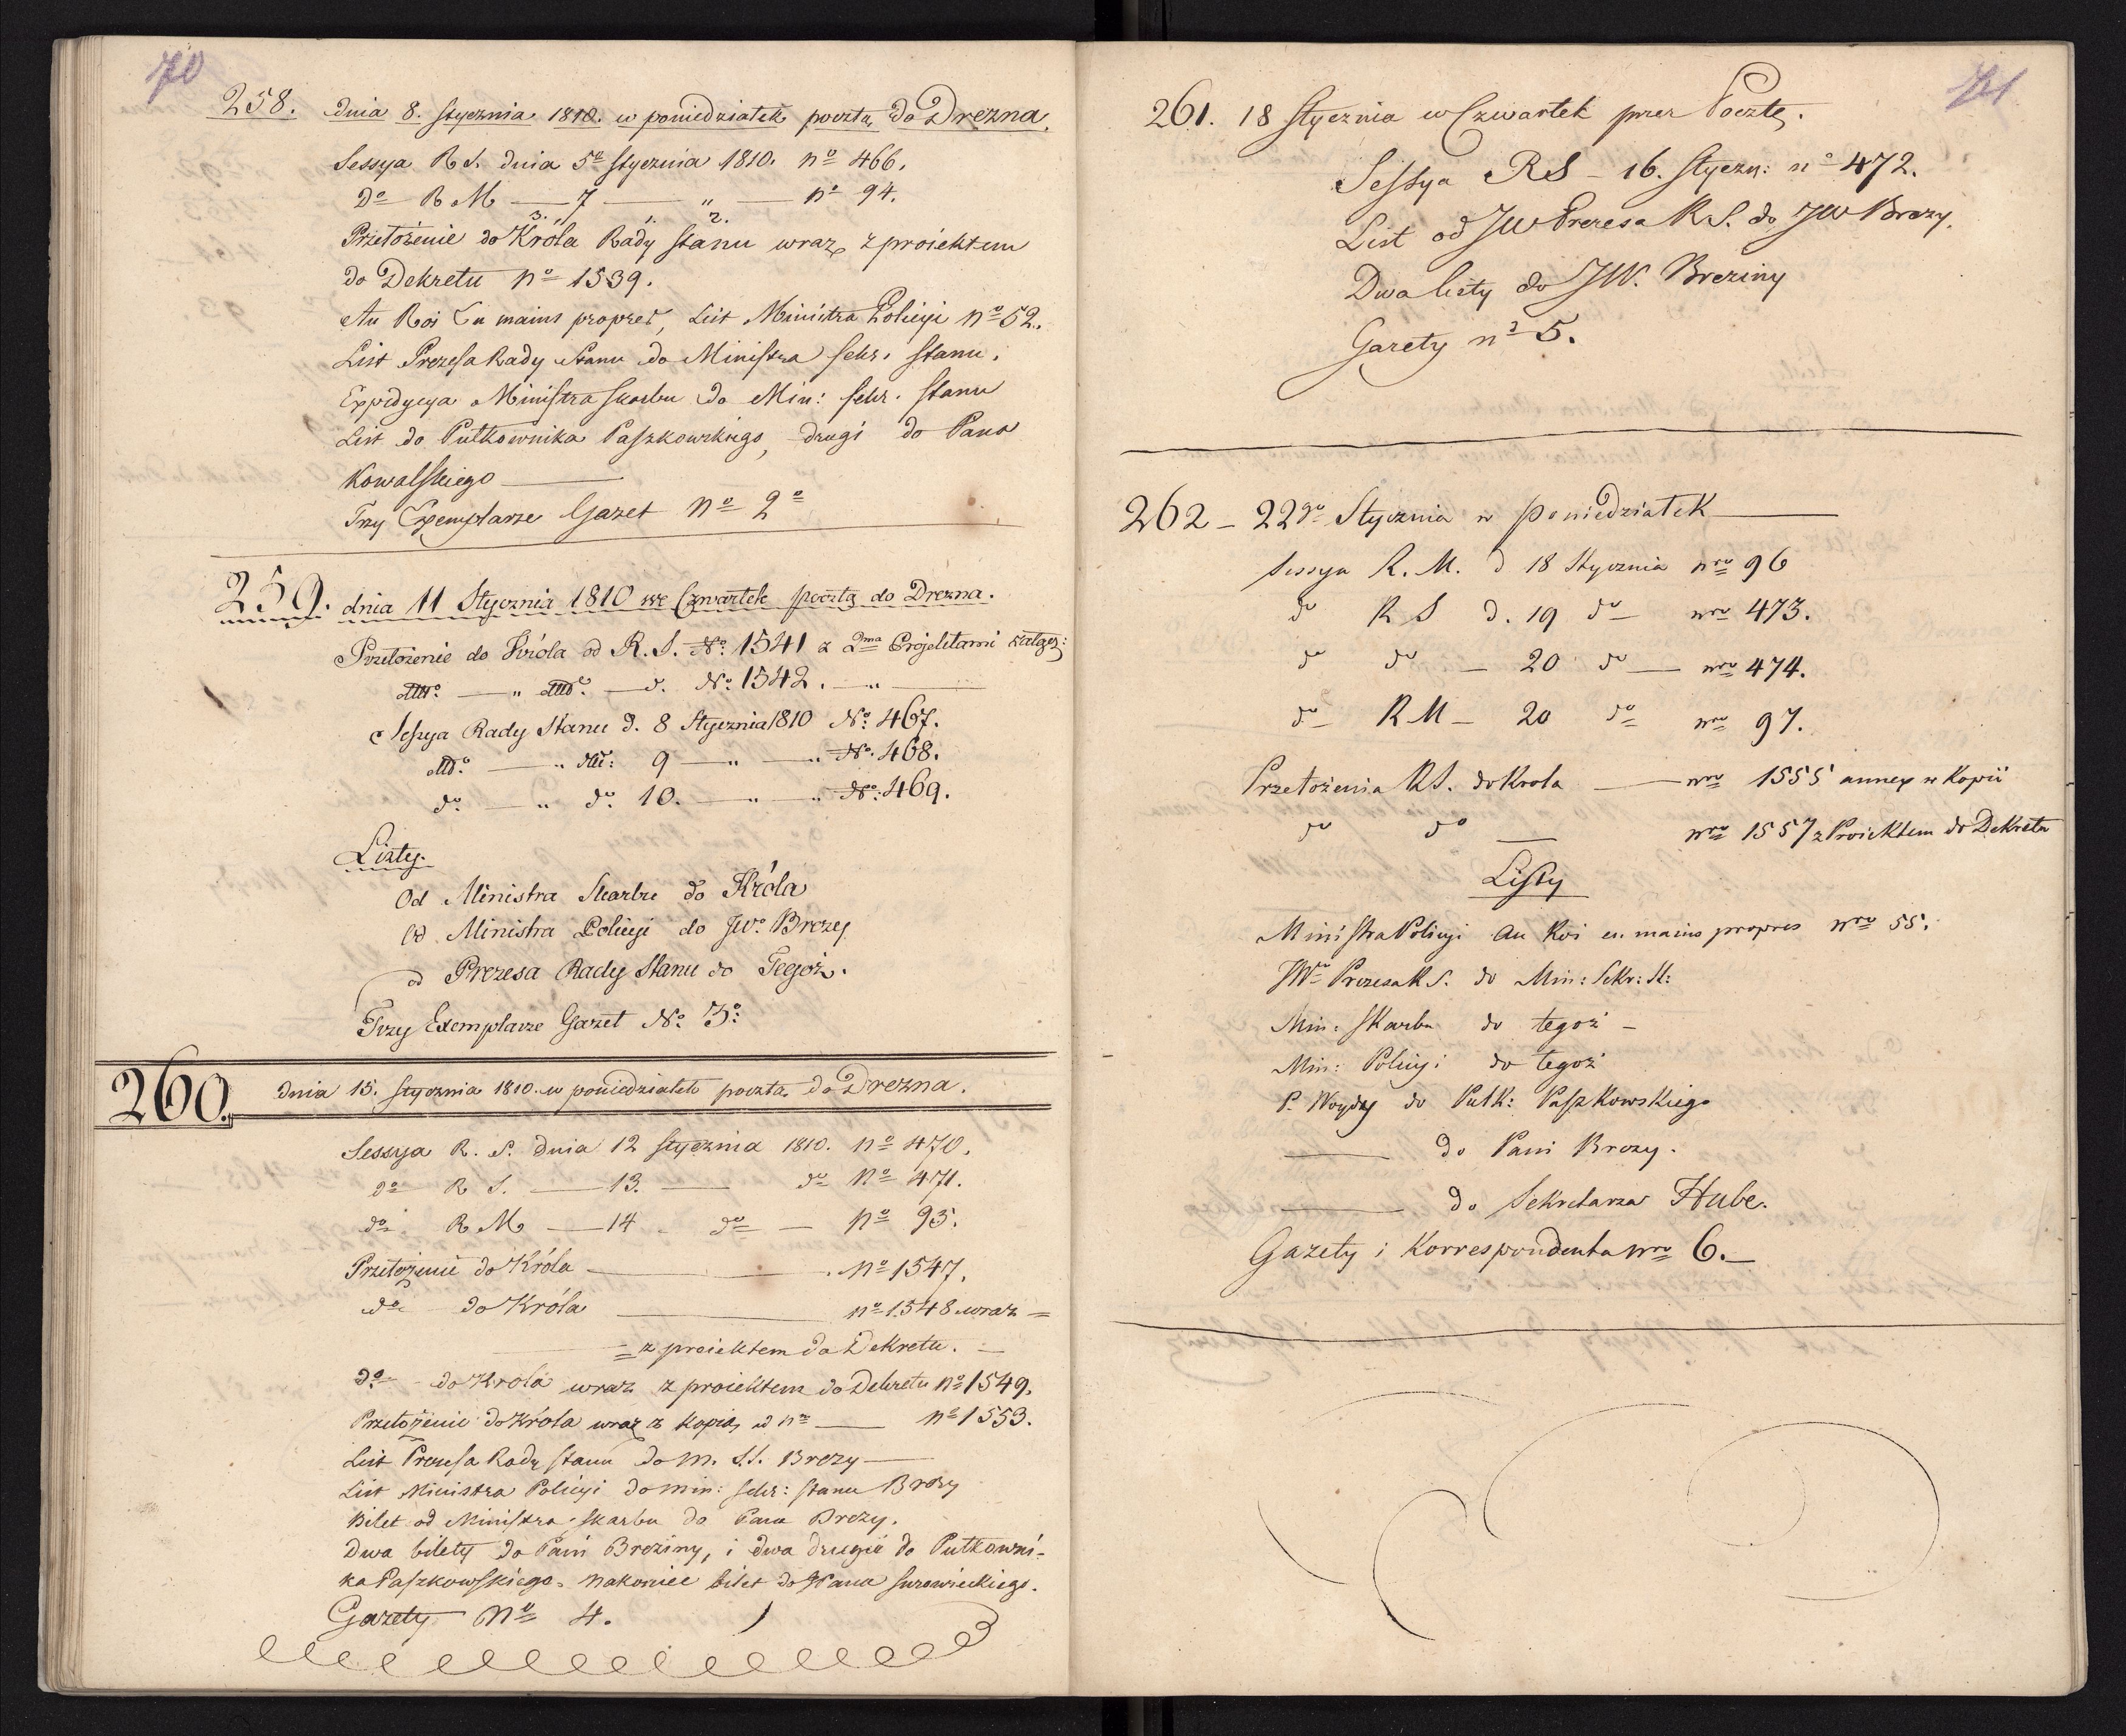 70
258. dnia 8. stycznia 1810. w poniedziałek pocztą do Drezna.
Sessya R S. dnia 5º stycznia 1810. nº 466.
dº R M — 7 — " — nº 94.
3. 1. 2.
Przełożenie do Króla Rady stanu wraz z proiektem
do Dekretu nº 1539.
Au Roi En mains propres, List Ministra Policyi nº 52.
List Prezesa Rady Stanu do Ministra sekr. stanu.
Expedycya Ministra skarbu do Min: sekr. stanu
List do Pułkownika Paszkowskiego, drugi do Pana
Kowalskiego —
Trzy Exemplarze Gazet Nº 2º
259. dnia 11 Stycznia 1810 we Czwartek pocztą do Drezna.
Przełożenie do Króla od R. S. Nº 1541 z 2ma Projektami
— " — Nº 1542. — " —
Sessya Rady Stanu d. 8 Stycznia 1810 Nº 467.
— " 9 — " — " Nº 468.
dº — " dº 10. — " — " Nº 469.
Listy.
Od Ministra Skarbu do Króla
Od Ministra Policyi do JWº Brezy
od Prezesa Rady Stanu do Tegoż.
Trzy Exemplarze Gazet Nº 3º
260. dnia 15. stycznia 1810. w poniedziałek pocztą do Drezna.
Sessya R. S. dnia 12 stycznia 1810. nº 470.
dº R S. — 13. — dº Nº 471.
dº R M — 14 dº — nº 95.
Przełożenie do Króla — nº 1547.
dº do Króla — nº 1548 wraz =
= z proiektem do Dekretu. —
dº do Króla wraz z proiektem do Dekretu nº 1549.
Przełożenie do Króla wraz z kopią ad nº — nº 1553.
List Prezesa Rady stanu do M. S.S. Brezy —
List Ministra Policyi do min: sekr: stanu Brezy
Bilet od Ministra skarbu do Pana Brezy.
Dwa bilety do Pani Breziny, i dwa drugie do Pułkowni-
ka Paszkowskiego. nakoniec bilet do Pana Surowieckiego.
Gazety Nº 4.
71
261. 18 Stycznia w Czwartek przez Pocztę.
Sessya RS – 16. Styczn: nº 472.
List od JW Prezesa R S. do JW Brezy.
Dwa listy do JW. Breziny
Gazety nº 5.
262 – 22go Stycznia w Poniedziałek —
Sessya R. M. d 18 Stycznia nro 96
dº R S d. 19 dº – nro 473.
dº dº – 20 dº — nro 474.
dº R M – 20 dº nro 97.
Przełożenia R S. do Krola — nro 1555 annex w Kopii
dº dº — nro 1557 z Proiektem do Dekretu
Listy
Ministra Policyi au Roi en mains propres nro 55.
JWº Prezesa R S. do Min: Sekr: St:
Min: Skarbu do tegoż –
Min: Policyi do tegoż
P. Woydy do Pułk: Paszkowskiego
— do Pani Brezy.
— do Sekretarza Hube.
Gazety i Korrespondenta nro 6. —